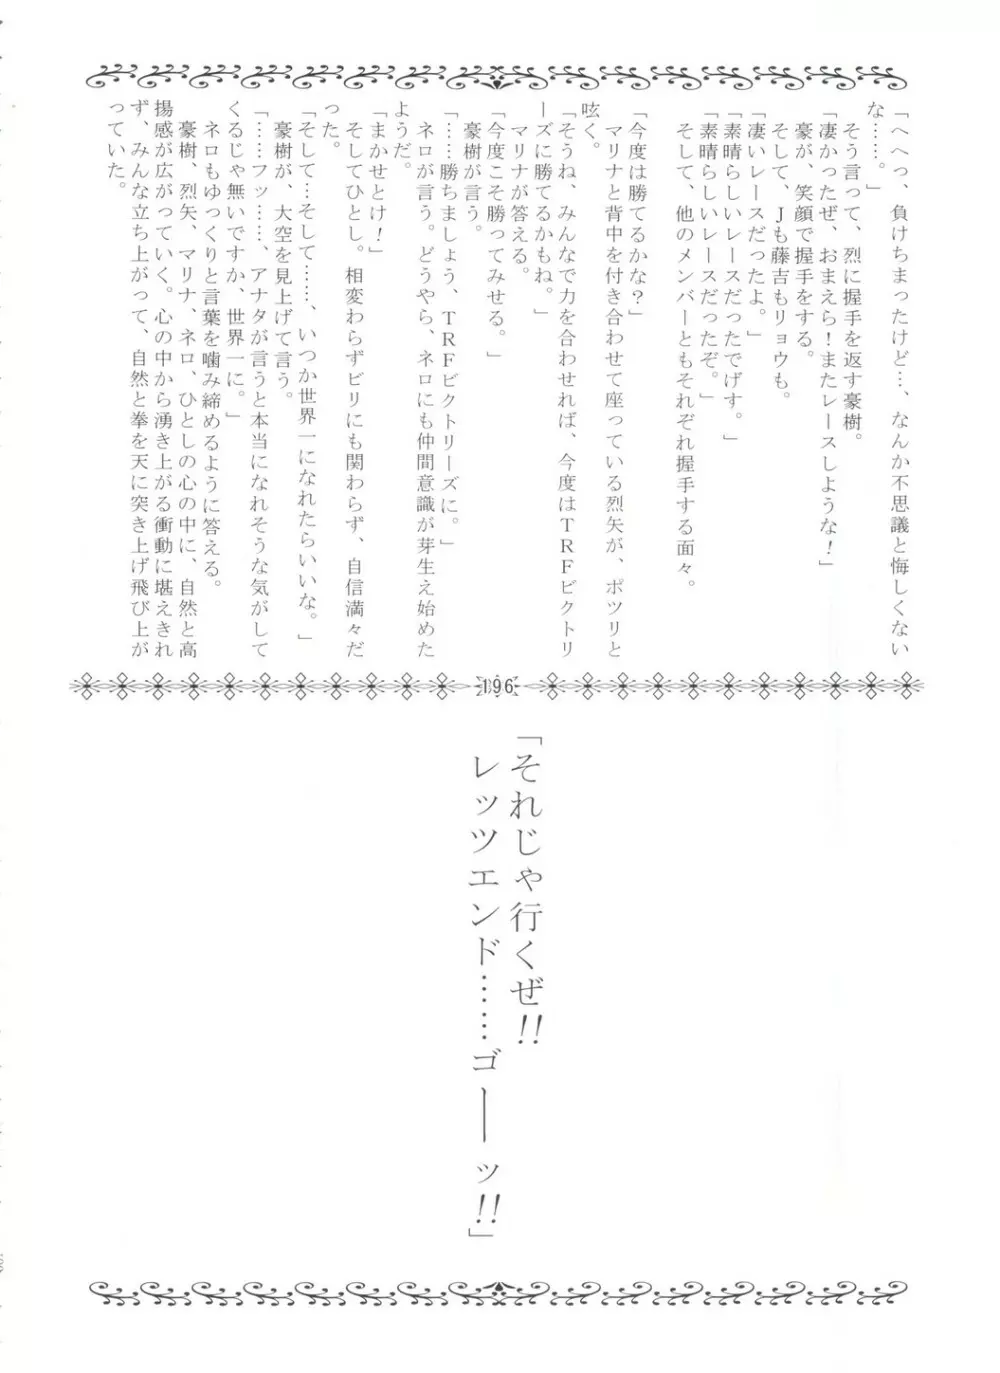 「へへっ、負けちまったけど…、なんか不思議と悔しくない
な……。」
そう言って、烈に握手を返す豪樹。
「凄かったぜ、おまえら！またレースしような！」
豪が、笑顔で握手をする。
そして、Ｊも藤吉もリョウも。
「凄いレースだったよ。」
「素晴らしいレースだったでげす。」
「素晴らしいレースだったぞ。」
そして、他のメンバーともそれぞれ握手する面々。
「今度は勝てるかな？」
マリナと背中を付き合わせて座っている烈矢が、ポツリと
呟く。
「そうね、みんなで力を合わせれば、今度はＴＲＦビクトリ
ーズに勝てるかもね。」
マリナが答える。
「今度こそ勝ってみせる。」
豪樹が言う。
「……勝ちましょう、ＴＲＦビクトリーズに。」
ネロが言う。どうやら、ネロにも仲間意識が芽生え始めた
ようだ。
「まかせとけ！」
そしてひとし。相変わらずビリにも関わらず、自信満々だ
った。
「そして…そして……、いつか世界一になれたらいいな。」
豪樹が、大空を見上げて言う。
「……フッ……、アナタが言うと本当になれそうな気がして
くるじゃ無いですか、世界一に。」
ネロもゆっくりと言葉を噛み締めるように答える。
豪樹、烈矢、マリナ、ネロ、ひとしの心の中に、自然と高
揚感が広がっていく。心の中から湧き上がる衝動に堪えきれ
ず、みんな立ち上がって、自然と拳を天に突き上げ飛び上が
っていた。
196
「それじゃ行くぜ!!
レッツエンド……ゴーッ!!」